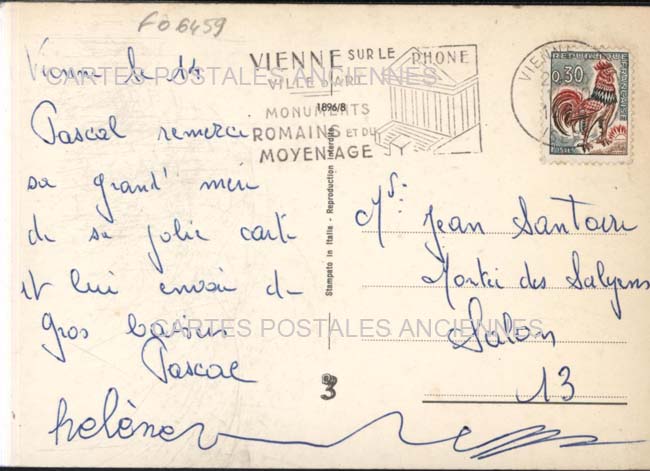 FO 6459
Vienne le 14
Pascal remercie
sa grand' mère
de sa jolie carte
et lui envoi de
Gros baisers
Pascal
helène
VIENNE SUR LE RHONE
VILLE D'ART
MONUMENTS
ROMAINS ET DU
MOYEN AGE
VIENNE
REPUBLIQUE FRANCAISE
0,30
POSTES
1896/8
Stampato in Italia - Reproduction Interdite
3
Jean Santoire
Montée des Salyens
Salon
13
CARTES POSTALES ANCIENNES
CARTES POSTALES ANCIENNES